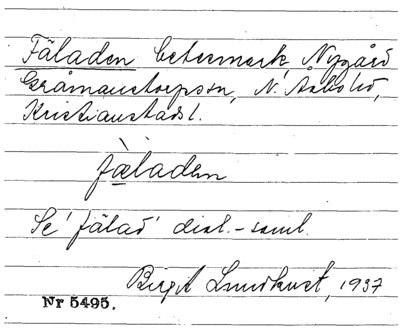 Fäladen betesmark, Nygård
Gråmanstorpssn, N. Åsbo hd,
Kristianstads l.
fæ̀laden
Se 'fälad' dial.-saml.
Birgit Lundkvist, 1937
Nr 5495.